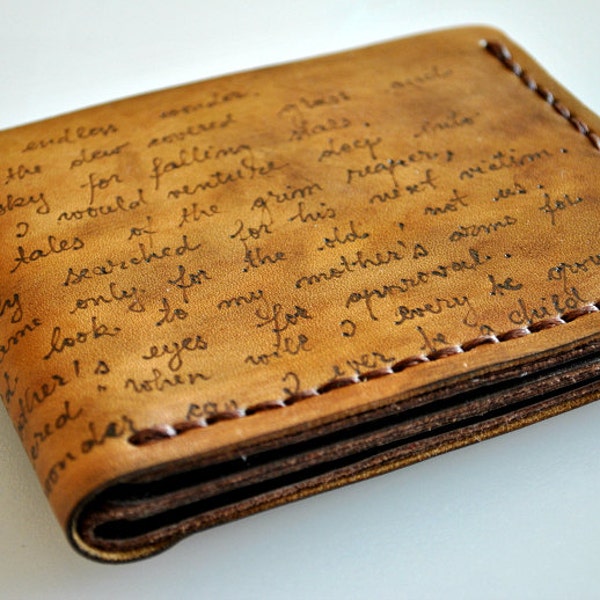 endless wonder.
the dew covered grass and
sky for falling stars.
I would venture deep into
tales of the grim reaper,
searched for his next victim.
ame only for the old, not us.
look to my mother's arms for
ther's eyes for approval.
ered, when will I every be grow
wonder can I ever be a child